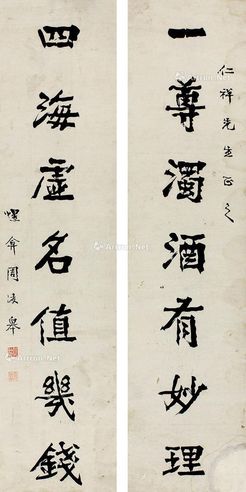 仁祥先生正之
一尊濁酒有妙理
四海虛名值幾錢
周淩皋
ArtNet
ArtNet